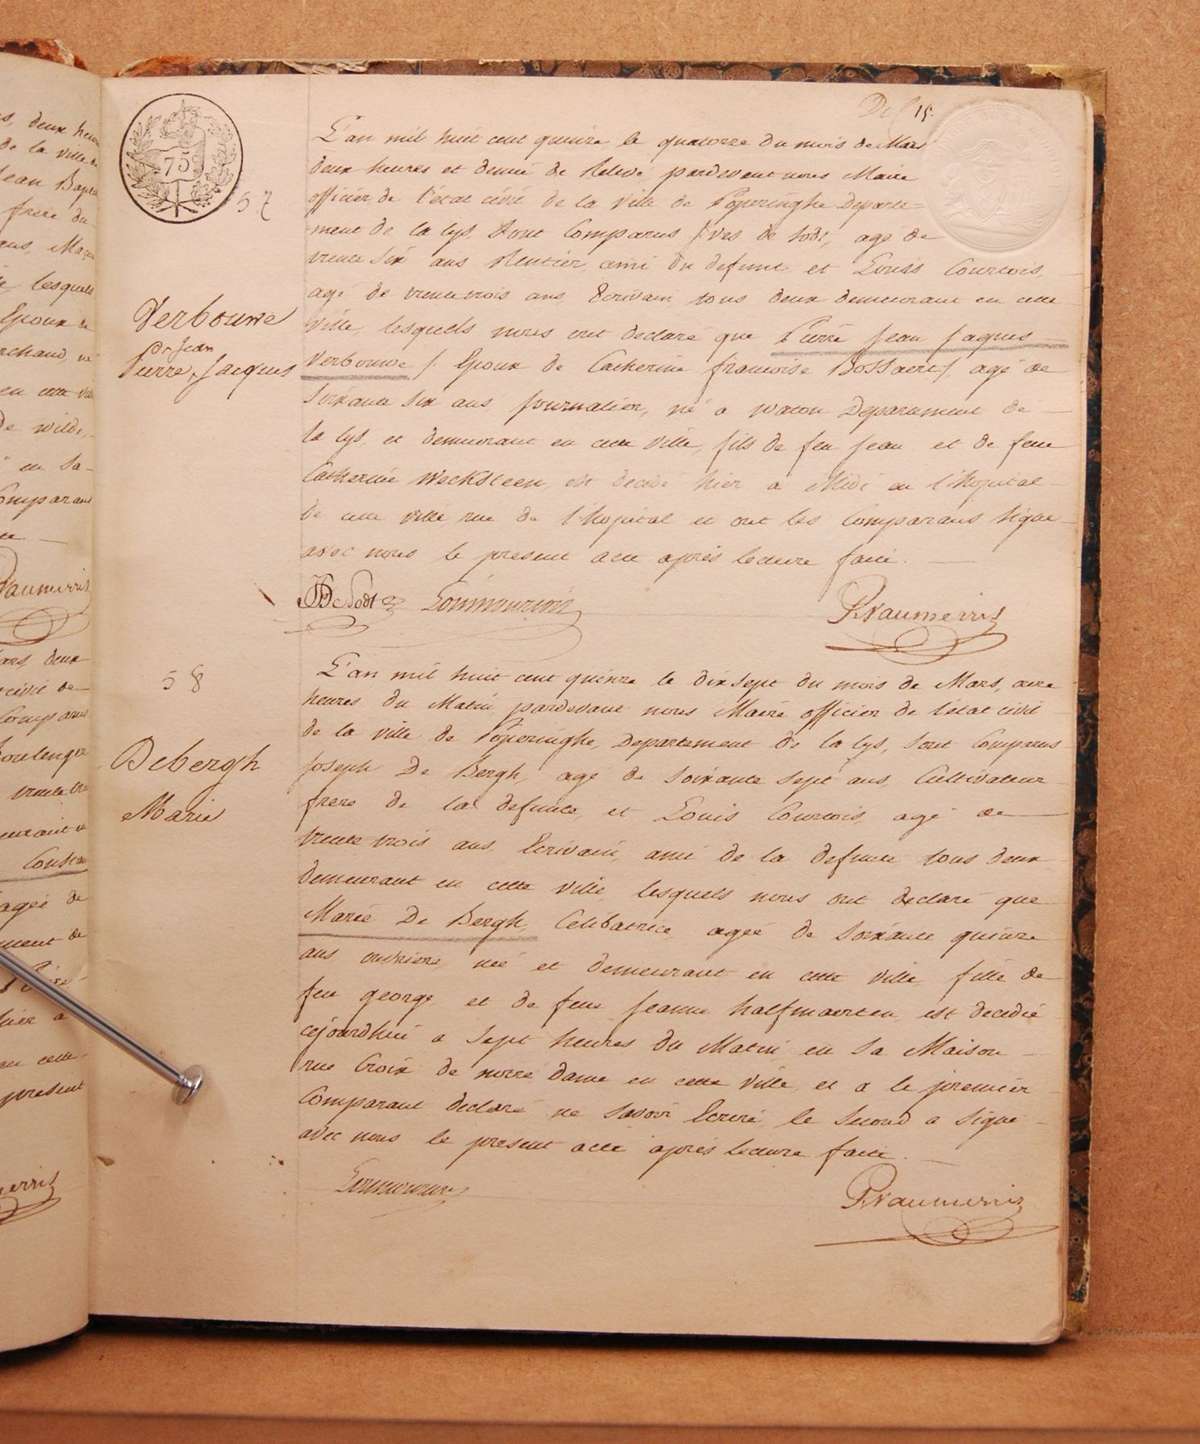 s, deux heu
De la ville de
Jean Bapt
frere du
ans, Ma
lesquels
Epoux de
rchand, né
en cette vil
De wilde,
en Sa-
Comparans
Vaumerris
ars deux
civil de
Comparus
Boulenger
trente
eurant e
Constan
agée de
ment de
hier a
en cette
present
merris
75
15.
57
L'an mil huit cent quinze le quatorze du mois de Mars
deux heures et demie de Relevé pardevant nous Maire
officier de l'état civil de la ville de Poperinghe Departe-
ment de la Lys, Sont Comparus Yves de Sodt, agé de
trente Six ans Rentier, ami du defunt et Louis Courtois,
agé de trente trois ans, Ecrivain tous deux demeurant en cette
ville, lesquels nous ont declaré que Pierre Jean Jaques
Verbouwe / Epoux de Catherine françoise Bossaert / agé de
Soixante Six ans Journalier, né a Watou Departement de
la Lys, et demeurant en cette ville, fils de feu Jean et de feue
Catherine Wecksteen est decédé hier a Midi en l'hopital
de cette ville rue de l'hopital et ont les Comparans Signé
avec nous le present acte après lecture faite.
Verbouwe
Jean
Pierre, Jacques
DeSodt
Rvaumerris
58
L'an mil huit cent quinze le dix sept du mois de Mars, onze
heures du Matin pardevant nous Maire officier de l'etat civil
de la ville de Poperinghe, Departement de la Lys, Sont Comparus
Joseph De Bergh, agé de Soixante Sept ans, Cultivateur
frere de la defunte, et Louis Courtois, agé de
trente trois ans, Ecrivain, ami de la defunte tous deux
demeurant en cette ville, lesquels nous ont declaré que
Marie De Bergh, Celibatrice agée de Soixante quinze
ans ouvriere née et demeurant en cette ville, fille de
feu george et de feue Jeanne halfmaerten est decedée
cejourdhui a Sept heures du Matin en Sa Maison
rue Croix de notre Dame en cette ville, et a le premier
Comparant declaré ne Savoir Ecrire, le Second a Signé
avec nous le present acte après lecture faite.
Debergh
Marie
Rvaumerris